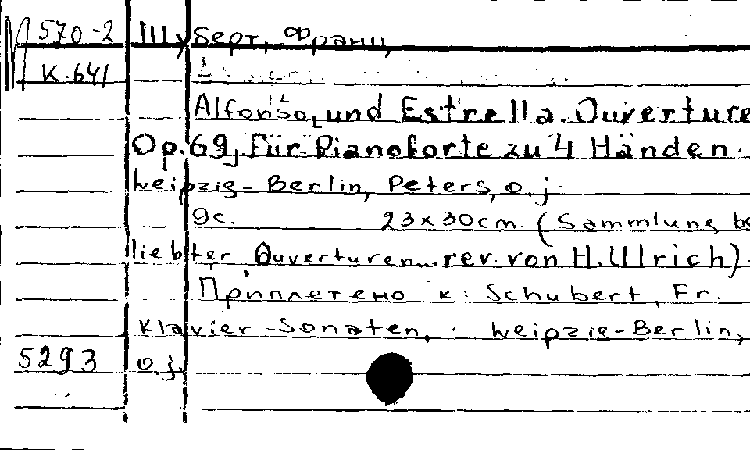 П 570-2 Шуберт, Франц,
К.641
Alfonso und Estrella. Ouverture
Op. 69, Für Pianoforte zu 4 Händen.
Leipzig-Berlin, Peters, o. j.
9c. 23x30cm. (Sammlung be
liebter Ouverturen... rev. von H. Ulrich).
Приплетено к: Schubert, Fr.
Klavier-Sonaten, Leipzig-Berlin,
5293 o.j.